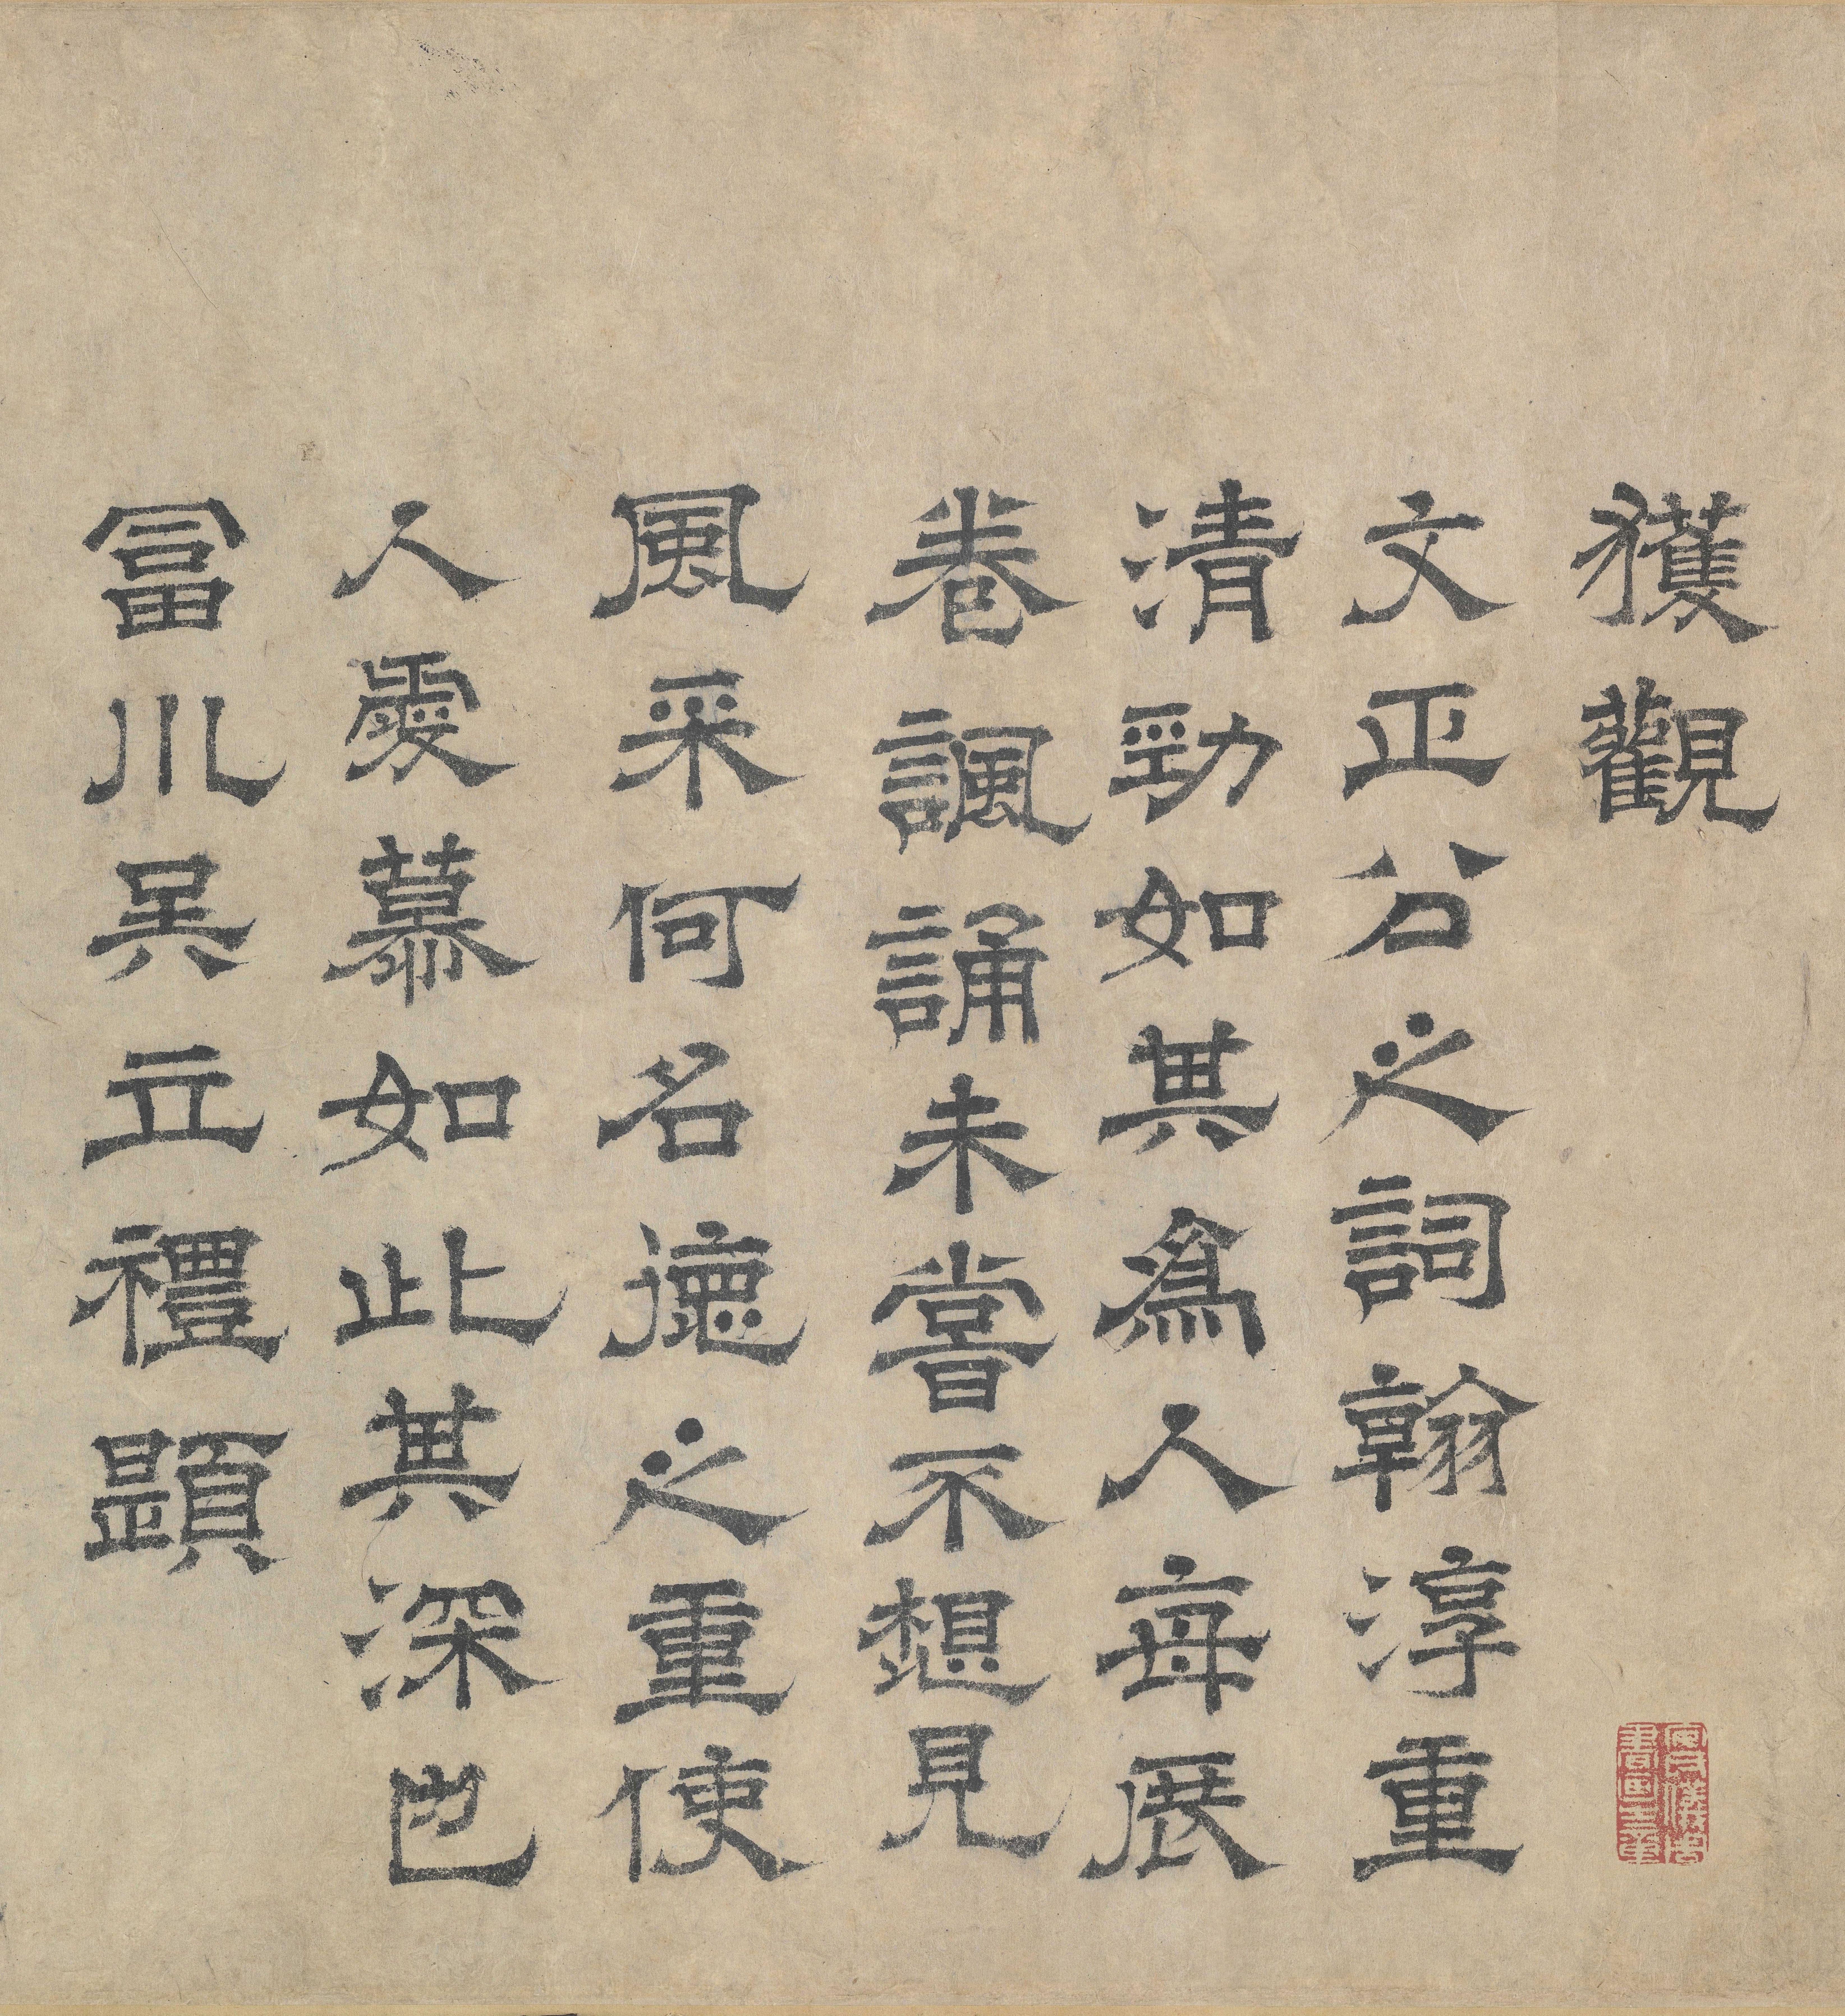 獲觀
文正公之詞翰淳重
清勁如其爲人每展
卷諷誦未嘗不想見
風采何名德之重使
人愛慕如此其深也
富川吴立禮題